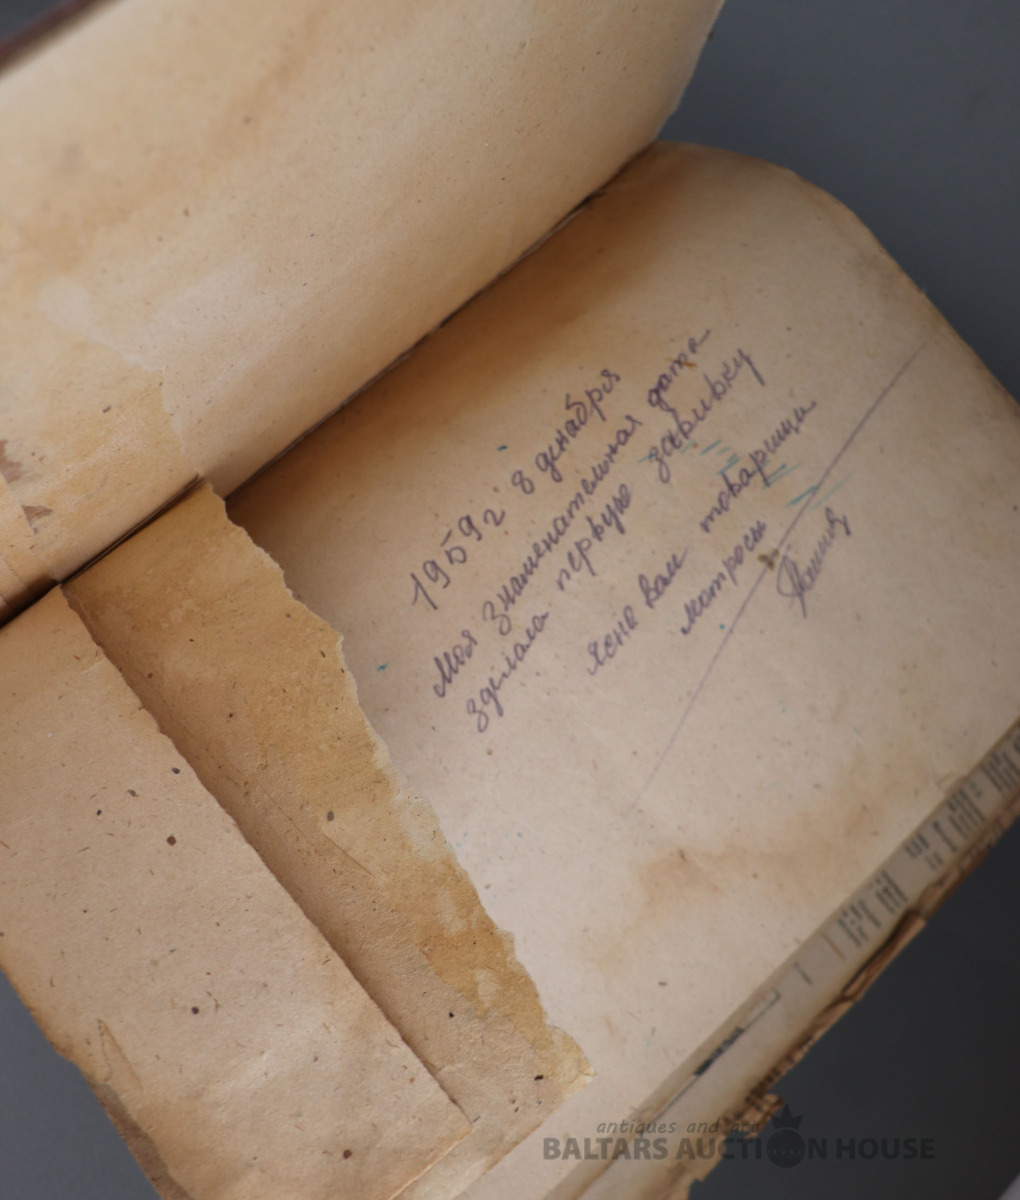 1959 г 8 декабря
Моя знаменательная дата
зделала первую завивку
Ясно вам товарищи
матросы
antiques and art
BALTARS AUCTION HOUSE